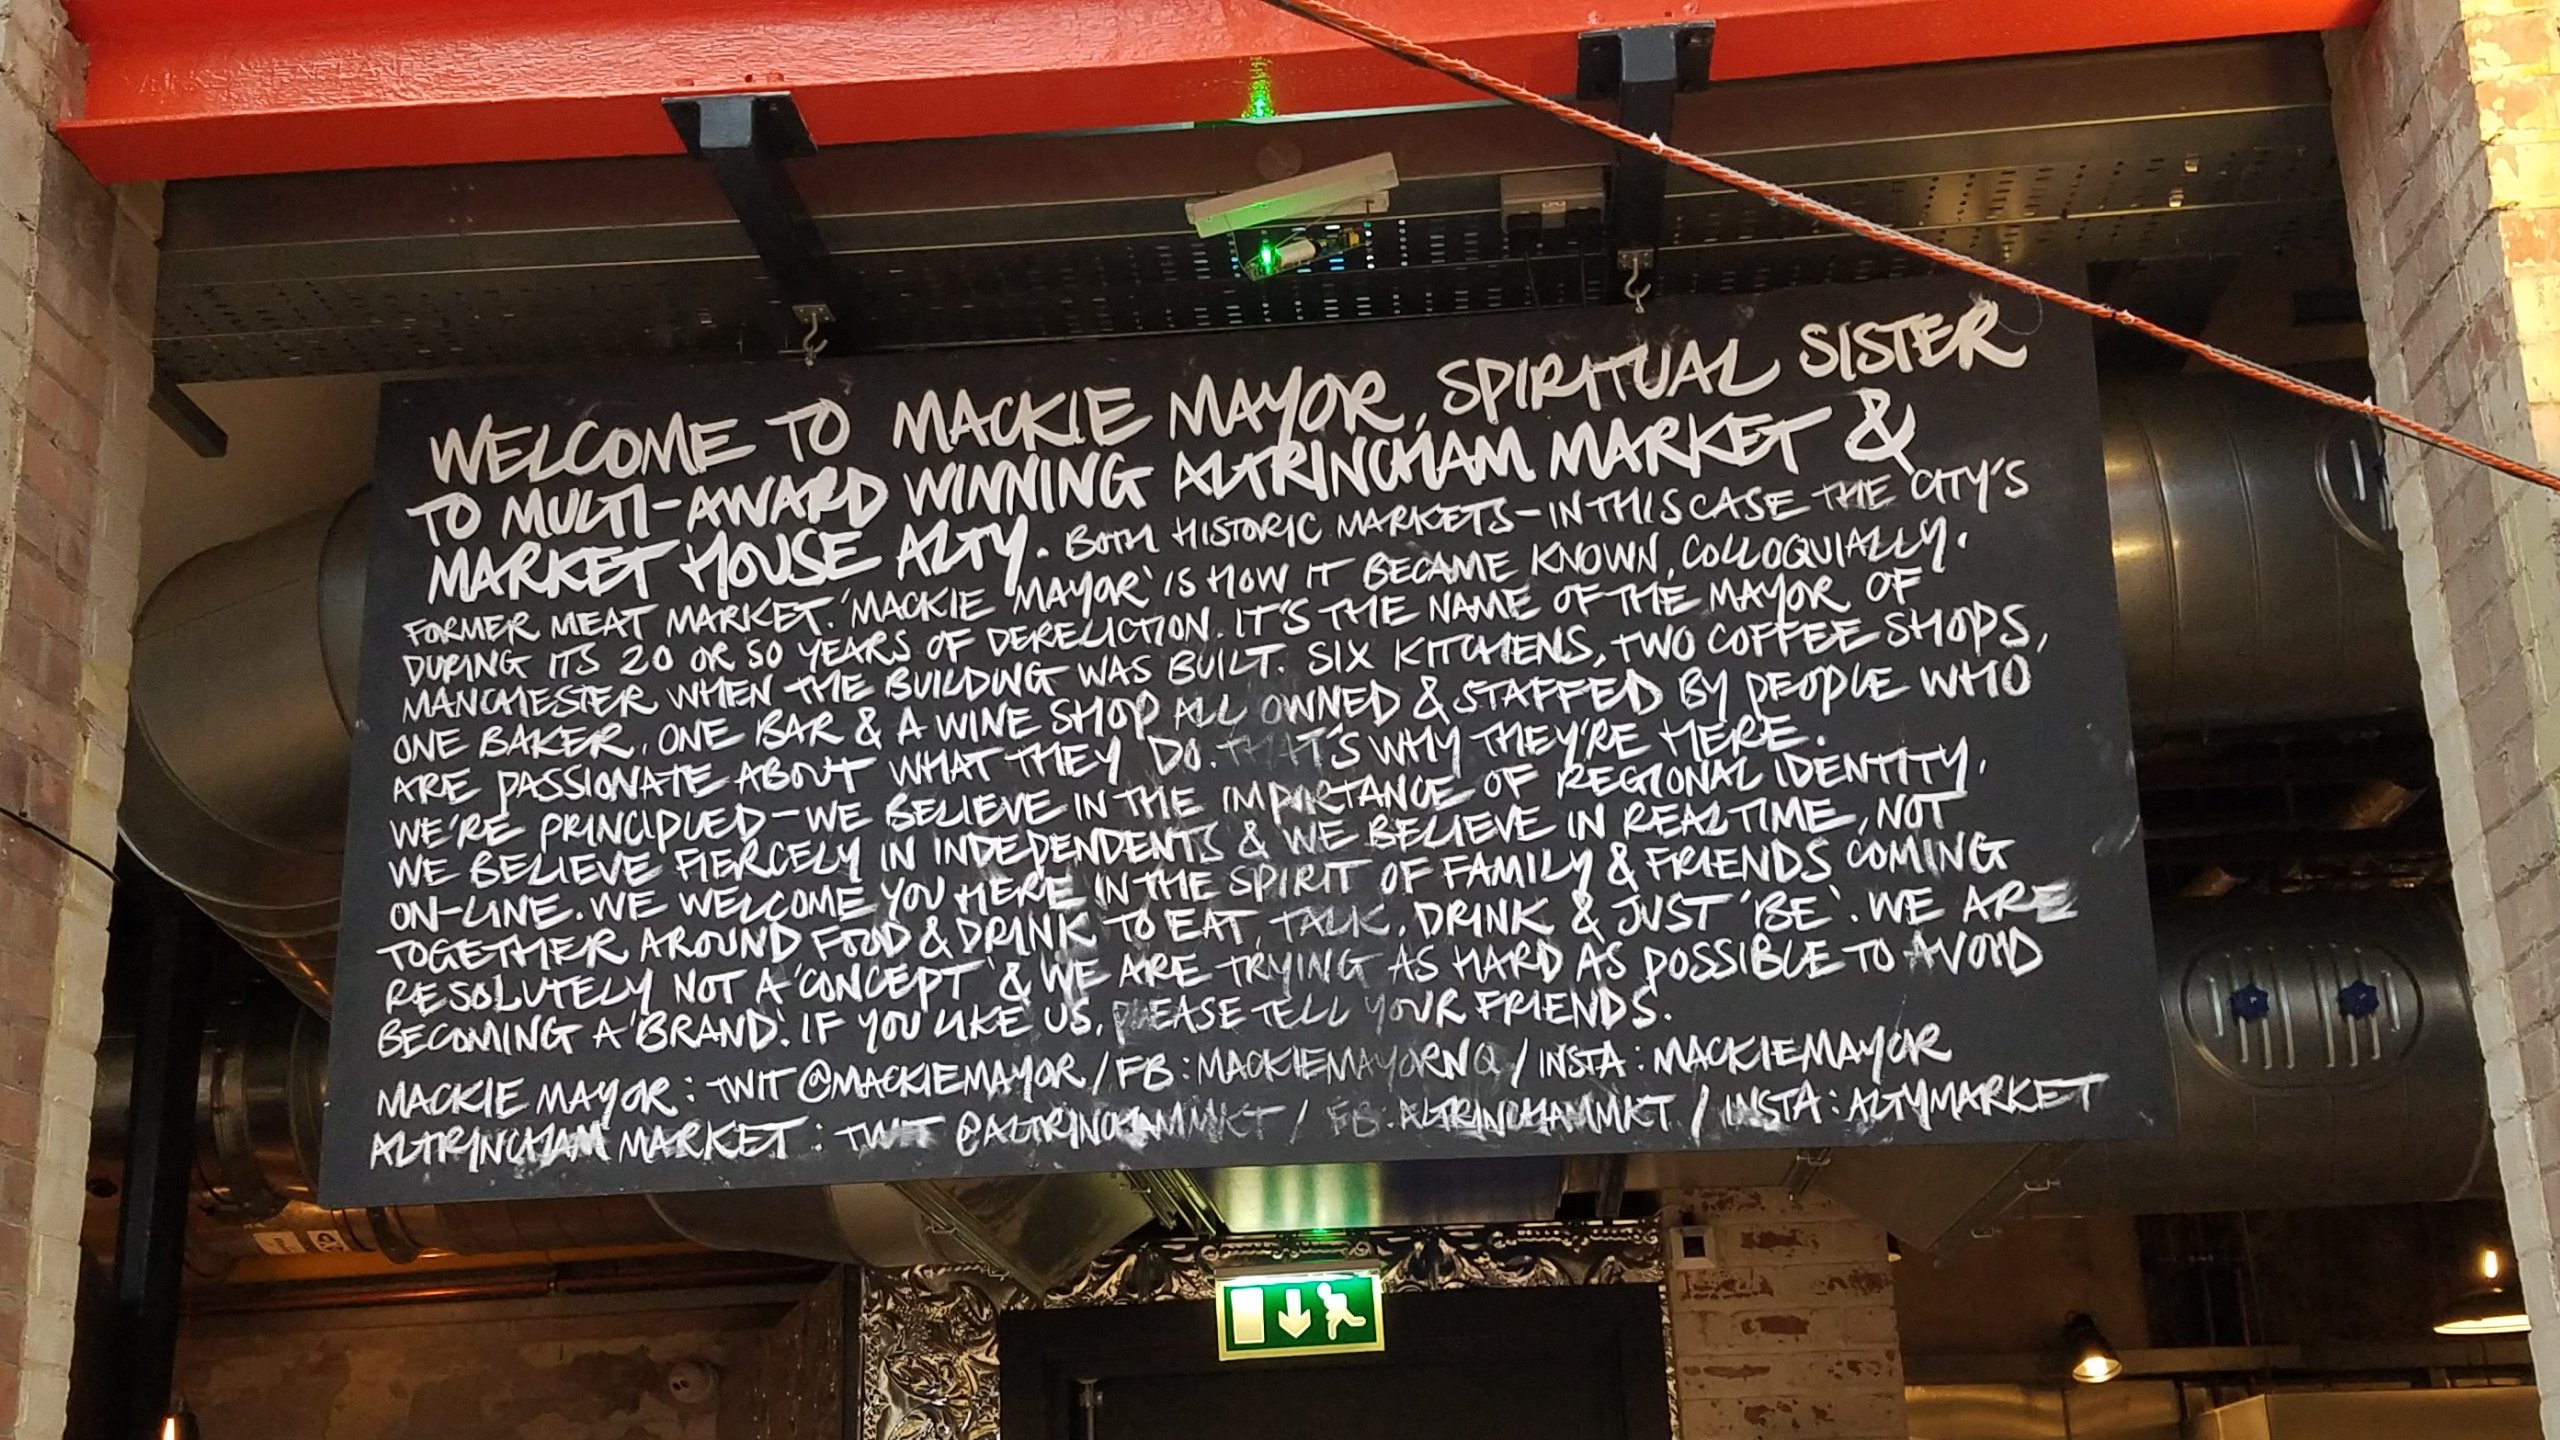 WELCOME TO MACKIE MAYOR, SPIRITUAL SISTER
TO MULTI-AWARD WINNING ALTRINCHAM MARKET &
MARKET HOUSE ALTY. BOTH HISTORIC MARKETS - IN THIS CASE THE CITY'S
FORMER MEAT MARKET. 'MACKIE MAYOR' IS HOW IT BECAME KNOWN, COLLOQUIALLY,
DURING ITS 20 OR SO YEARS OF DERELICTION. IT'S THE NAME OF THE MAYOR OF
MANCHESTER WHEN THE BUILDING WAS BUILT. SIX KITCHENS, TWO COFFEE SHOPS,
ONE BAKER, ONE BAR & A WINE SHOP ALL OWNED & STAFFED BY PEOPLE WHO
ARE PASSIONATE ABOUT WHAT THEY DO. THAT'S WHY THEY'RE HERE.
WE'RE PRINCIPLED - WE BELIEVE IN THE IMPORTANCE OF REGIONAL IDENTITY,
WE BELIEVE FIERCELY IN INDEPENDENTS & WE BELIEVE IN REAL TIME, NOT
ON-LINE. WE WELCOME YOU HERE IN THE SPIRIT OF FAMILY & FRIENDS COMING
TOGETHER AROUND FOOD & DRINK TO EAT, TALK, DRINK & JUST 'BE'. WE ARE
RESOLUTELY NOT A 'CONCEPT' & WE ARE TRYING AS HARD AS POSSIBLE TO AVOID
BECOMING A 'BRAND'. IF YOU LIKE US, PLEASE TELL YOUR FRIENDS.
MACKIE MAYOR : TWIT @MACKIEMAYOR / FB : MACKIEMAYORNQ / INSTA : MACKIEMAYOR
ALTRINCHAM MARKET : TWIT @ALTRINCHAMMKT / FB : ALTRINCHAMMKT / INSTA : ALTYMARKET